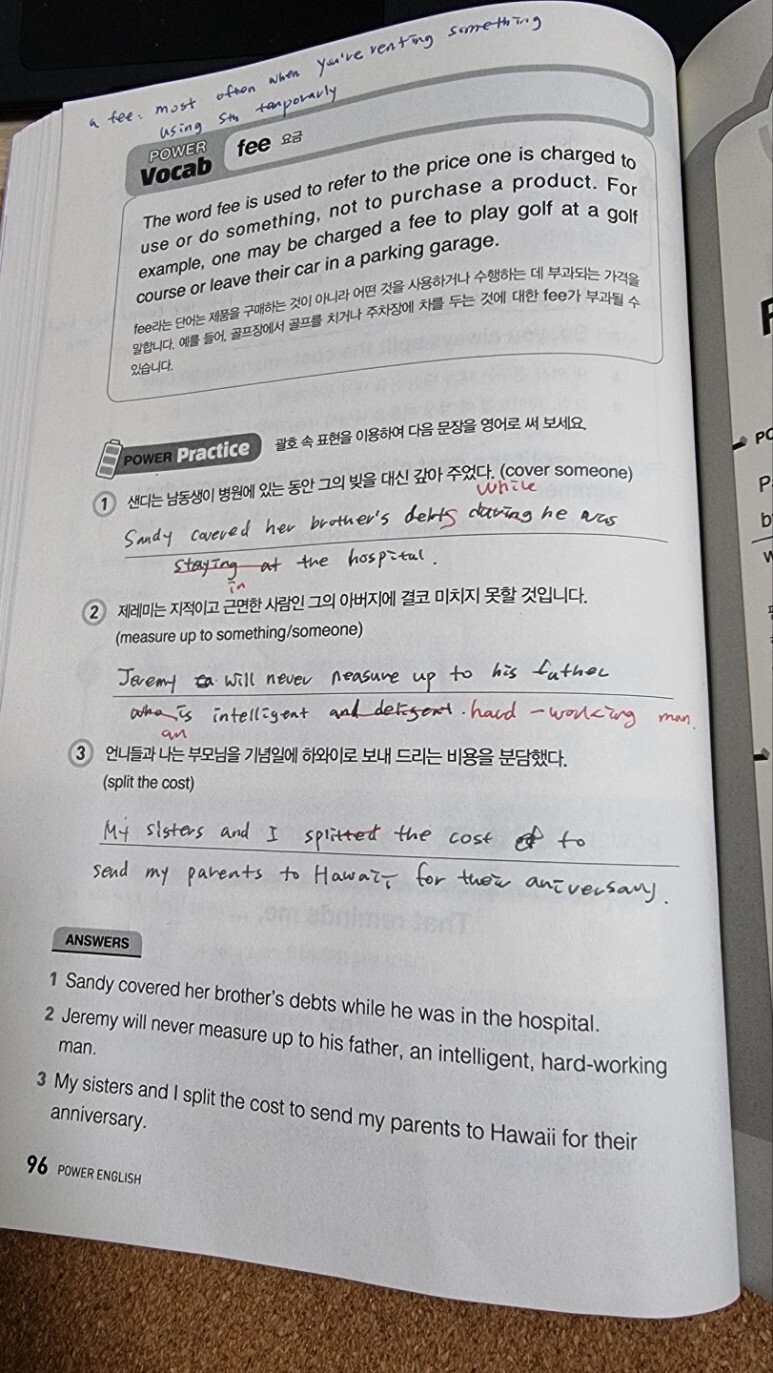 a fee: most often when you're renting something
using sth temporarly
POWER
Vocab fee 요금
The word fee is used to refer to the price one is charged to
use or do something, not to purchase a product. For
example, one may be charged a fee to play golf at a golf
course or leave their car in a parking garage.
fee라는 단어는 제품을 구매하는 것이 아니라 어떤 것을 사용하거나 수행하는 데 부과되는 가격을
말합니다. 예를 들어, 골프장에서 골프를 치거나 주차장에 차를 두는 것에 대한 fee가 부과될 수
있습니다.
POWER Practice 괄호 속 표현을 이용하여 다음 문장을 영어로 써 보세요.
1 샌디는 남동생이 병원에 있는 동안 그의 빚을 대신 갚아 주었다. (cover someone)
while
Sandy covered her brother's debts during he was
staying at the hospital.
in
2 제레미는 지적이고 근면한 사람인 그의 아버지에 결코 미치지 못할 것입니다.
(measure up to something/someone)
Jeremy will never measure up to his father
who is intelligent and deligent. hard-working man.
an
3 언니들과 나는 부모님을 기념일에 하와이로 보내 드리는 비용을 분담했다.
(split the cost)
My sisters and I splitted the cost of to
send my parents to Hawaii for their aniversary.
ANSWERS
1 Sandy covered her brother's debts while he was in the hospital.
2 Jeremy will never measure up to his father, an intelligent, hard-working
man.
3 My sisters and I split the cost to send my parents to Hawaii for their
anniversary.
96 POWER ENGLISH